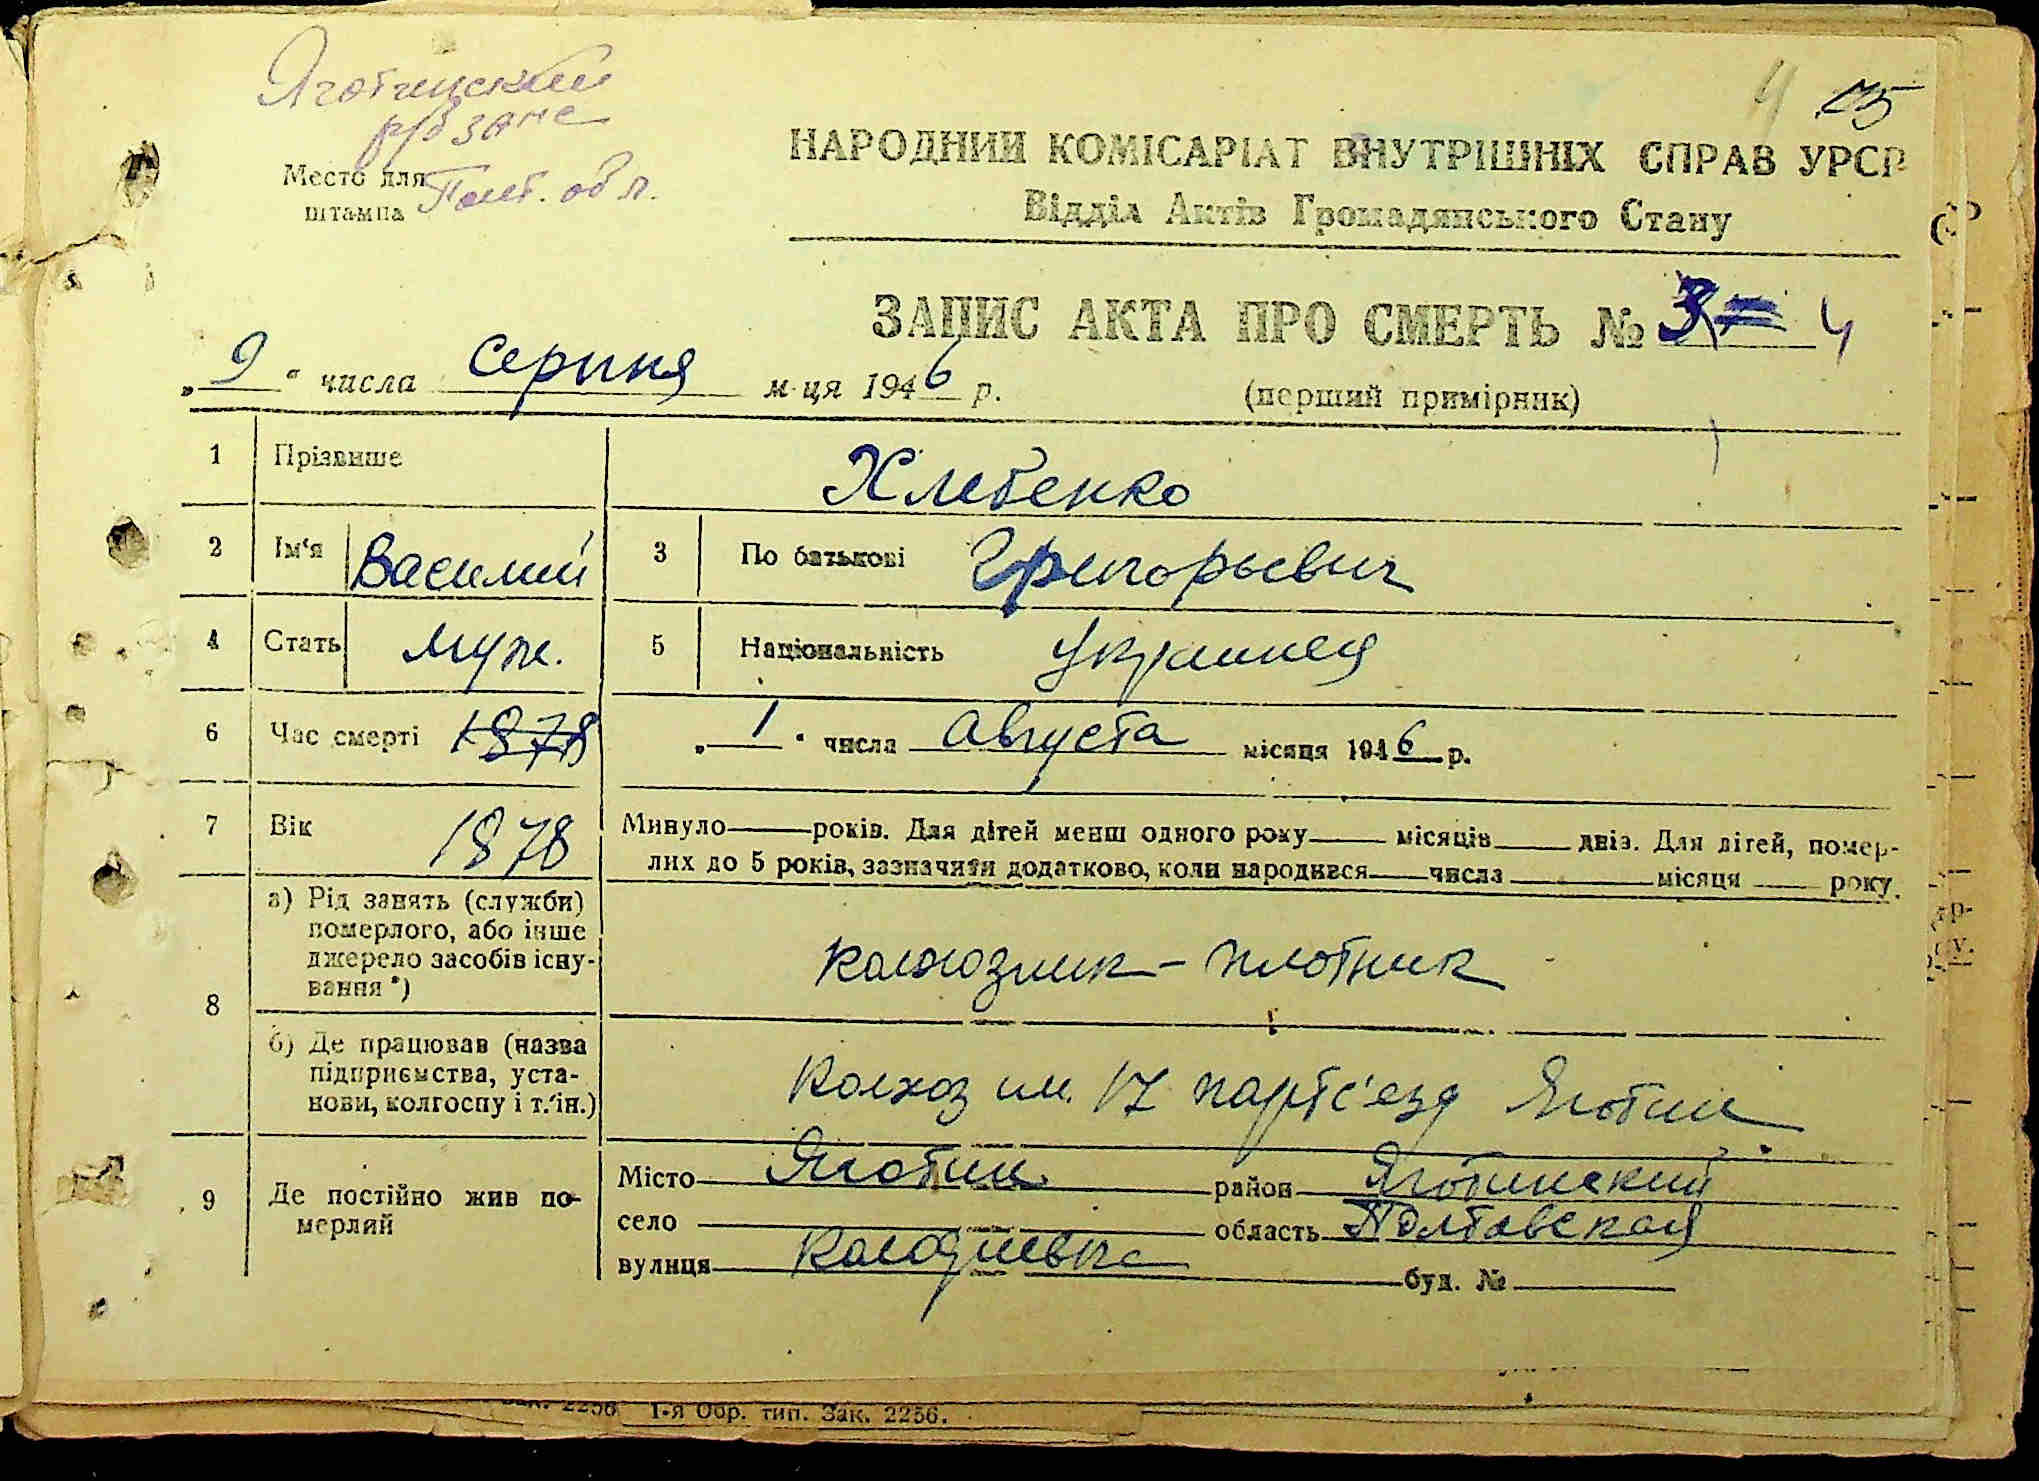 Яготинский
р/б загс
Полт. обл.
Место для
штампа
4
НАРОДНИЙ КОМІСАРІАТ ВНУТРІШНІХ СПРАВ УРСР
Відділ Актів Громадянського Стану
ЗАПИС АКТА ПРО СМЕРТЬ № 4
„ 9 “ числа серпня м-ця 1946 р.
(перший примірник)
1 Прізвише Хлебенко
2 Ім‘я Василий 3 По батькові Григорьевич
4 Стать муж. 5 Національність украинец
6 Час смерті 1878 „ 1 “ числа августа місяця 1946 р.
7 Вік 1878 Минуло—років. Для дітей менш одного року— місяців— днів. Для дітей, помер-
лих до 5 років, зазначити додатково, коли народився—числа—місяця—року.
8 а) Рід занять (служби)
померлого, або інше
джерело засобів існу-
вання *)
колхозник - плотник
б) Де працював (назва
підприємства, уста-
нови, колгоспу і т. ін.)
Колхоз им. 17 партс'езд Яготин
9 Де постійно жив по-
мерлий
Місто Яготин район Яготинский
село область Полтавская
вулиця буд. №
1-я Обр. тип. Зак. 2256.